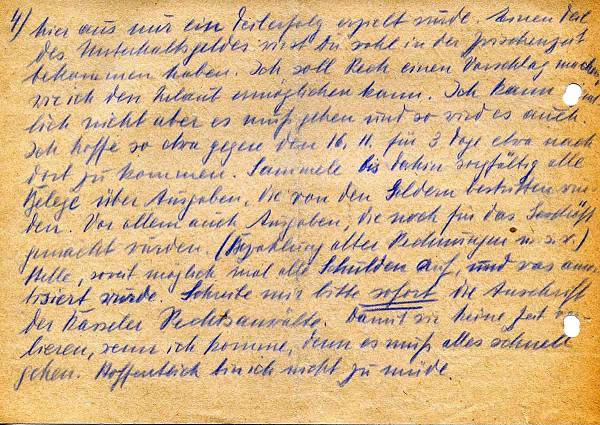 4) hier aus nur ein Teilerfolg erzielt wurde. Einen Teil
des Unterhaltsgeldes wirst Du wohl in der Zwischenzeit
bekommen haben. Ich soll Rech einen Vorschlag machen
wie ich den helaut ermöglichen kann. Ich kann
lich nicht aber es muß gehen und so wird es auch.
Ich hoffe so etwa gegen den 16. 11. für 3 Tage etwa nach
dort zu kommen. Sammele bis dahin sorgfältig alle
Belege über Ausgaben, die von den Geldern bestritten wur-
den. Vor allem auch Ausgaben, die noch für das Geschäft
gemacht wurden. (Bezahlung alter Rechnungen u. s. w.)
Stelle, soweit möglich mal alle Schulden auf, und was amor-
tisiert wurde. Schreibe mir bitte sofort die Anschrift
der Kasseler Rechtsanwälte. Damit wir keine Zeit ver-
lieren, wenn ich komme, denn es muß alles schnell
gehen. Hoffentlich bin ich nicht zu müde.